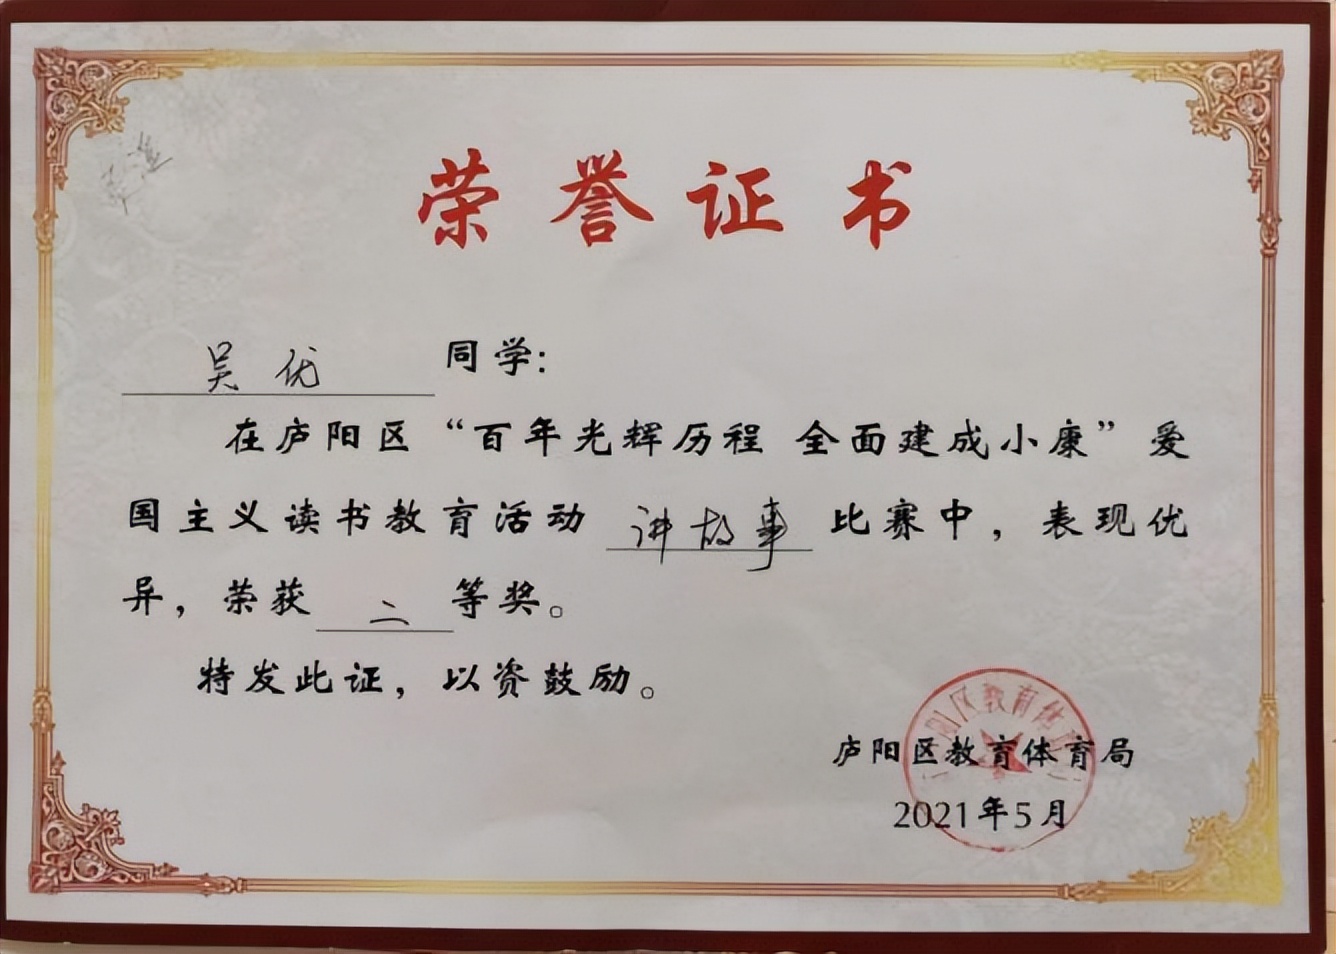 荣誉证书
吴优 同学:
在庐阳区“百年光辉历程 全面建成小康”爱
国主义读书教育活动 讲故事 比赛中，表现优
异，荣获 二 等奖。
特发此证，以资鼓励。
阳区教育体
庐阳区教育体育局
2021年5月